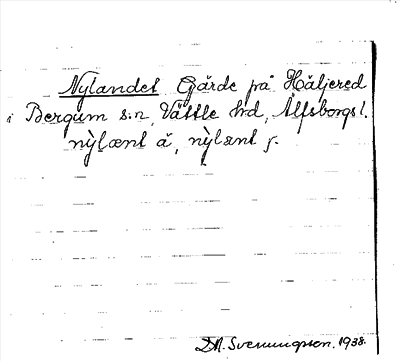 Nylandet Gärde på Häljered
i Bergum s:n, Vättle hd, Älfsborgs l.
nỳlænt å, nỳlænt
D.A. Svenungsson. 1938.